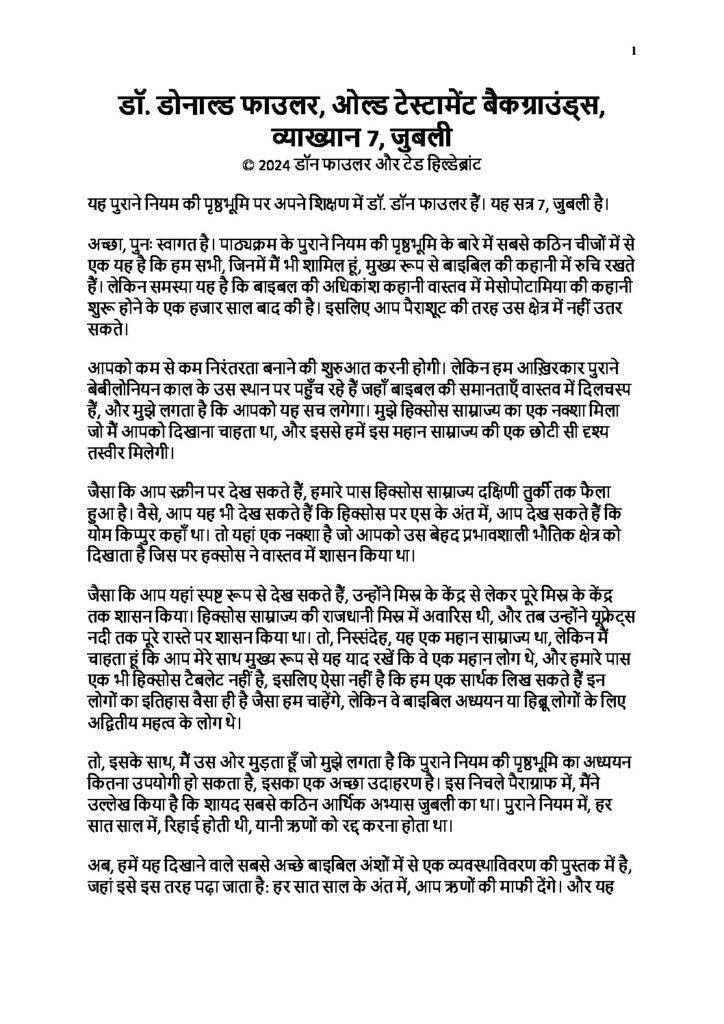 1
डॉ. डोनाल्ड फाउलर, ओल्ड टेस्टामेंट बैकग्राउंड्स,
व्याख्यान 7, जुबली
© 2024 डॉन फाउलर और टेड हिल्डेब्रांट
यह पुराने नियम की पृष्ठभूमि पर अपने शिक्षण में डॉ. डॉन फाउलर हैं। यह सत्र 7, जुबली है।
अच्छा, पुनः स्वागत है। पाठ्यक्रम के पुराने नियम की पृष्ठभूमि के बारे में सबसे कठिन चीजों में से
एक यह है कि हम सभी, जिनमें मैं भी शामिल हूं, मुख्य रूप से बाइबिल की कहानी में रुचि रखते
हैं। लेकिन समस्या यह है कि बाइबल की अधिकांश कहानी वास्तव में मेसोपोटामिया की कहानी
शुरू होने के एक हजार साल बाद की है। इसलिए आप पैराशूट की तरह उस क्षेत्र में नहीं उतर
सकते।
आपको कम से कम निरंतरता बनाने की शुरुआत करनी होगी। लेकिन हम आख़िरकार पुराने
बेबीलोनियन काल के उस स्थान पर पहुँच रहे हैं जहाँ बाइबल की समानताएँ वास्तव में दिलचस्प
हैं, और मुझे लगता है कि आपको यह सच लगेगा। मुझे हिक्सोस साम्राज्य का एक नक्शा मिला
जो मैं आपको दिखाना चाहता था, और इससे हमें इस महान साम्राज्य की एक छोटी सी दृश्य
तस्वीर मिलेगी।
जैसा कि आप स्क्रीन पर देख सकते हैं, हमारे पास हिक्सोस साम्राज्य दक्षिणी तुर्की तक फैला
हुआ है। वैसे, आप यह भी देख सकते हैं कि हिक्सोस पर एस के अंत में, आप देख सकते हैं कि
योम किप्पुर कहाँ था। तो यहां एक नक्शा है जो आपको उस बेहद प्रभावशाली भौतिक क्षेत्र को
दिखाता है जिस पर हक्सोस ने वास्तव में शासन किया था।
जैसा कि आप यहां स्पष्ट रूप से देख सकते हैं, उन्होंने मिस्र के केंद्र से लेकर पूरे मिस्र के केंद्र
तक शासन किया। हिक्सोस साम्राज्य की राजधानी मिस्र में अवारिस थी, और तब उन्होंने यूफ्रेट्स
नदी तक पूरे रास्ते पर शासन किया था। तो, निस्संदेह, यह एक महान साम्राज्य था, लेकिन मैं
चाहता हूं कि आप मेरे साथ मुख्य रूप से यह याद रखें कि वे एक महान लोग थे, और हमारे पास
एक भी हिक्सोस टैबलेट नहीं है, इसलिए ऐसा नहीं है कि हम एक सार्थक लिख सकते हैं इन
लोगों का इतिहास वैसा ही है जैसा हम चाहेंगे, लेकिन वे बाइबिल अध्ययन या हिब्रू लोगों के लिए
अद्वितीय महत्व के लोग थे।
तो, इसके साथ, मैं उस ओर मुड़ता हूँ जो मुझे लगता है कि पुराने नियम की पृष्ठभूमि का अध्ययन
कितना उपयोगी हो सकता है, इसका एक अच्छा उदाहरण है। इस निचले पैराग्राफ में, मैंने
उल्लेख किया है कि शायद सबसे कठिन आर्थिक अभ्यास जुबली का था। पुराने नियम में, हर
सात साल में, रिहाई होती थी, यानी ऋणों को रद्द करना होता था।
अब, हमें यह दिखाने वाले सबसे अच्छे बाइबिल अंशों में से एक व्यवस्थाविवरण की पुस्तक में है,
जहां इसे इस तरह पढ़ा जाता है: हर सात साल के अंत में, आप ऋणों की माफी देंगे। और यह